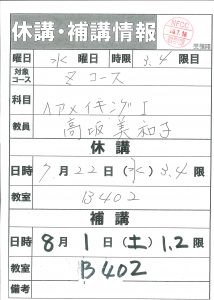 休講・補講情報
曜日 水 曜日 時限 3.4 限目
対象コース Z コース
科目 ヘアメイキングⅠ
教員 高坂 美和子
休 講
日時 7 月 22 日 (水) 3.4 限
教室 B402
補 講
日時 8 月 1 日 (土) 1.2 限
教室 B402
備考